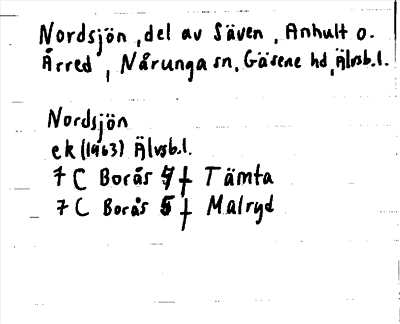 Nordsjön, del av Säven, Anhult o.
Årred, Nårunga sn, Gäsene hd, Älvsb.l.
Nordsjön
ek (1963) Älvsb.l.
7 C Borås 7 f Tämta
7 C Borås 5 f Malryd